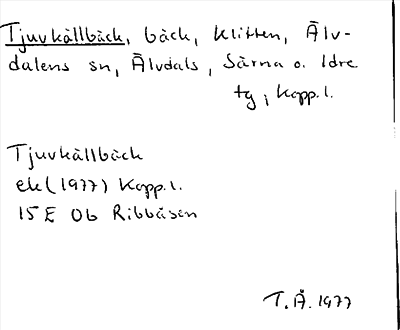 Tjuvkällbäck, bäck, Klitten, Älv-
dalens sn, Älvdals, Särna o. Idre
tg, Kopp.l.
Tjuvkällbäck
ek (1977) Kopp.l.
15E 0b Ribbåsen
T.Å. 1977